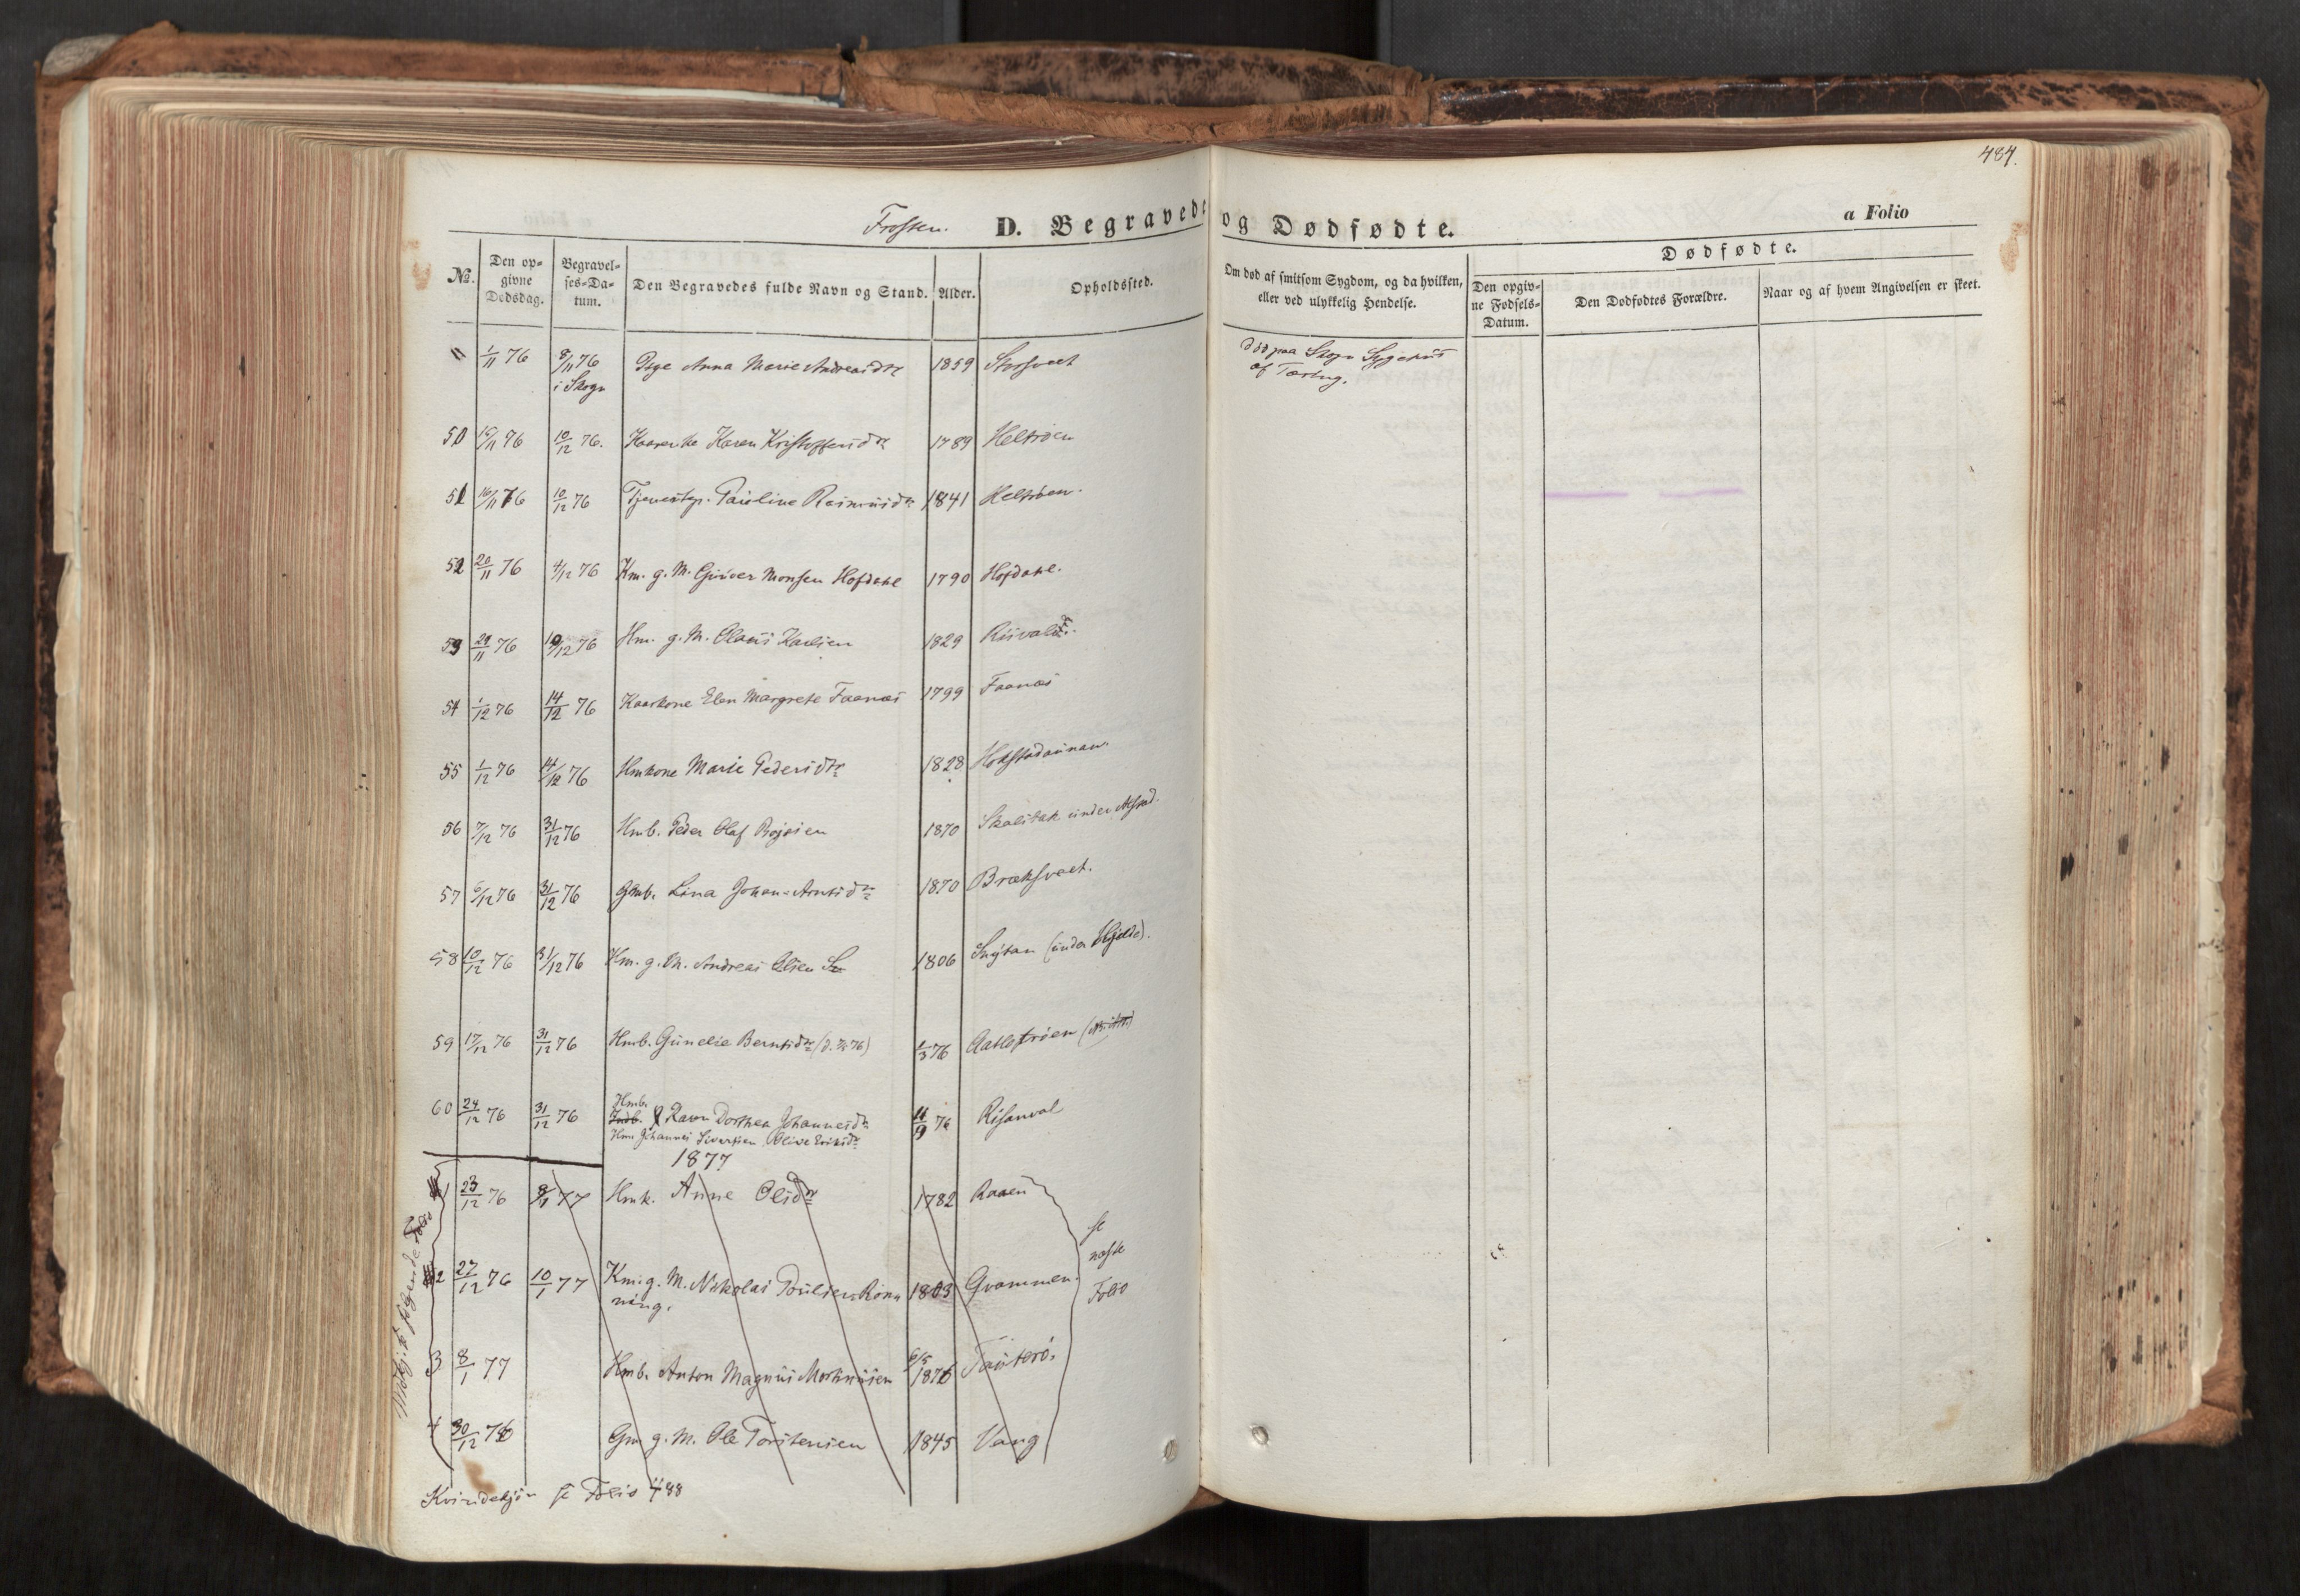 484.
Frosten. D. Begravede og Dødfødte. a Folio
Dødfødte.
No. Den opgivne Dødsdag. Begravelses-Datum. Den Begravedes fulde Navn og Stand. Alder. Opholdssted. Om død af smitsom Sygdom, og da hvilken, eller ved ulykkelig Hendelse. Den opgivne Fødsels-Datum. Den Dødfødtes Forældre. Naar og af hvem Angivelsen er skeet.
" 1/11 76 8/11 76 Pige Anna Marie Andreasdtr 1859 død paa Skogn Sygehus
i Skogn af Tæring.
50 15/11 76 10/12 76. Karen Kristoffersdtr 1789 Heltrøen
51 16/11 76 10/12 76 Tjenestep. Pauline Rasmusdtr 1841 Heltrøen.
52 20/11 76 4/12 76 Km. g. M. Guuer Monsen Hofdahl 1790 Hofdahl.
53 29/11 76 10/12 76 Hm. g. M. Olaus Karlsen 1829
54 1/12 76 14/12 76 Kaarkone Elen Margrete Faanæs 1799 Faanæs
55 1/12 76 14/12 76 Hmkone Marie Pedersdtr 1828 Hokstadaunan.
56 7/12 76 31/12 76 Hmb. Peder Olaf 1870 under
57 6/12 76 31/12 76 Gmb. Lina Johan-Arntsdtr 1870 Bræksveet.
58 10/12 76 31/12 76 Hm. g. M. Andreas Olsen 1806 (under Hjelde).
59 17/12 76 31/12 76 Hmb. Gunelie Berntsdtr 1/3 76
60 24/12 76 31/12 76 Hmb. Karen Dorthea Johannesdtr 11/9 76 Risanval
Hm Johannes Sivertsen Olive Eriksdtr
1877
1 23/12 76 8/1 77 Hmk. Anne Olsdtr 1782 Raaen
2 27/12 76 10/1 77 Km. g. M. Nikolai Poulsen 1803 Grammen. se næste Folio
3 8/1 77 Hmb. Anton Magnus 6/5 1876 Tauterø.
4 30/12 76 Gm g. M. Ole Torstensen 1845 Vang
Mdkj. se følgende Folio
Kvindekjøn se Folio 488